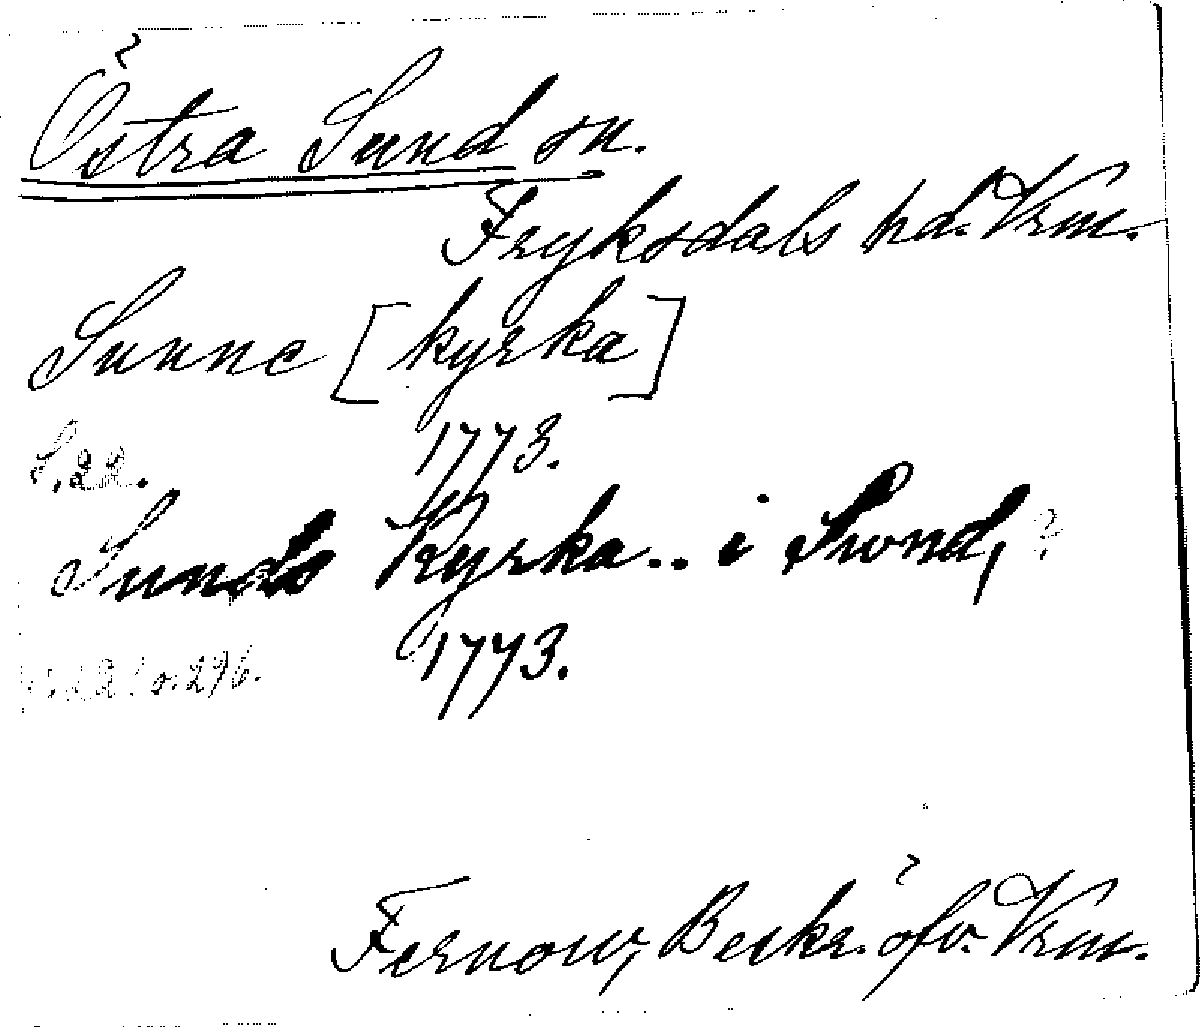 Östra Sund sn.
Fryksdals hd. Vrm.
Sunne [kyrka]
S. 22. 1773.
Sunds Kyrka.. i Swond,
o. 296. 1773.
Fernow, Beskr. öfv. Vrm.